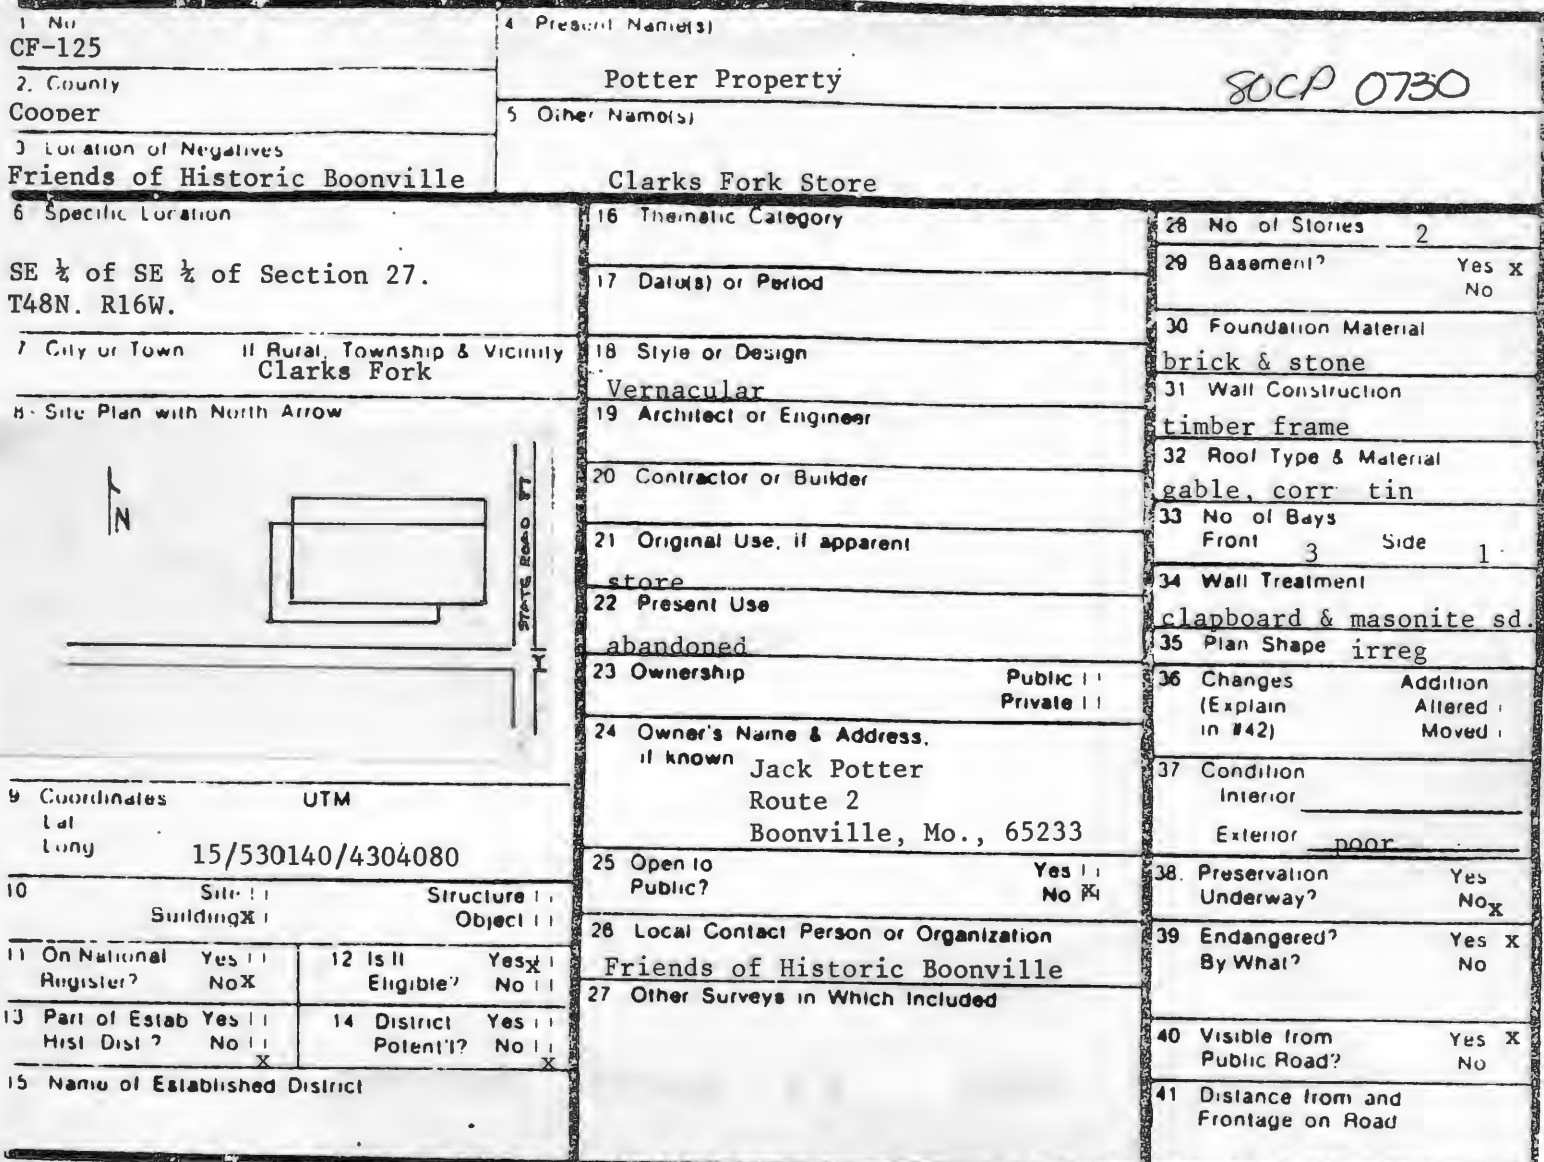 1 No
CF-125
2. County
Cooper
3 Location of Negatives
Friends of Historic Boonville
4 Present Name(s)
Potter Property
80CP 0730
5 Other Name(s)
Clarks Fork Store
6 Specific Location
SE ¼ of SE ¼ of Section 27.
T48N. R16W.
7 City or Town If Rural, Township & Vicinity
Clarks Fork
8 Site Plan with North Arrow
N
STATE ROAD
9 Coordinates UTM
Lat
Long
15/530140/4304080
10 Site Structure
Building X Object
11 On National Register? Yes No X
12 Is It Eligible? Yes X No
13 Part of Estab Hist Dist? Yes No X
14 District Potent'l? Yes No X
15 Name of Established District
16 Thematic Category
17 Date(s) or Period
18 Style or Design
Vernacular
19 Architect or Engineer
20 Contractor or Builder
21 Original Use, if apparent
store
22 Present Use
abandoned
23 Ownership Public
Private
24 Owner's Name & Address,
if known
Jack Potter
Route 2
Boonville, Mo., 65233
25 Open to Public? Yes
No X
26 Local Contact Person or Organization
Friends of Historic Boonville
27 Other Surveys in Which Included
28 No of Stories 2
29 Basement? Yes x
No
30 Foundation Material
brick & stone
31 Wall Construction
timber frame
32 Roof Type & Material
gable, corr tin
33 No of Bays
Front 3 Side 1
34 Wall Treatment
clapboard & masonite sd.
35 Plan Shape irreg
36 Changes Addition
(Explain Altered
in #42) Moved
37 Condition
Interior
Exterior poor
38. Preservation Yes
Underway? No x
39 Endangered? Yes x
By What? No
40 Visible from Yes x
Public Road? No
41 Distance from and
Frontage on Road